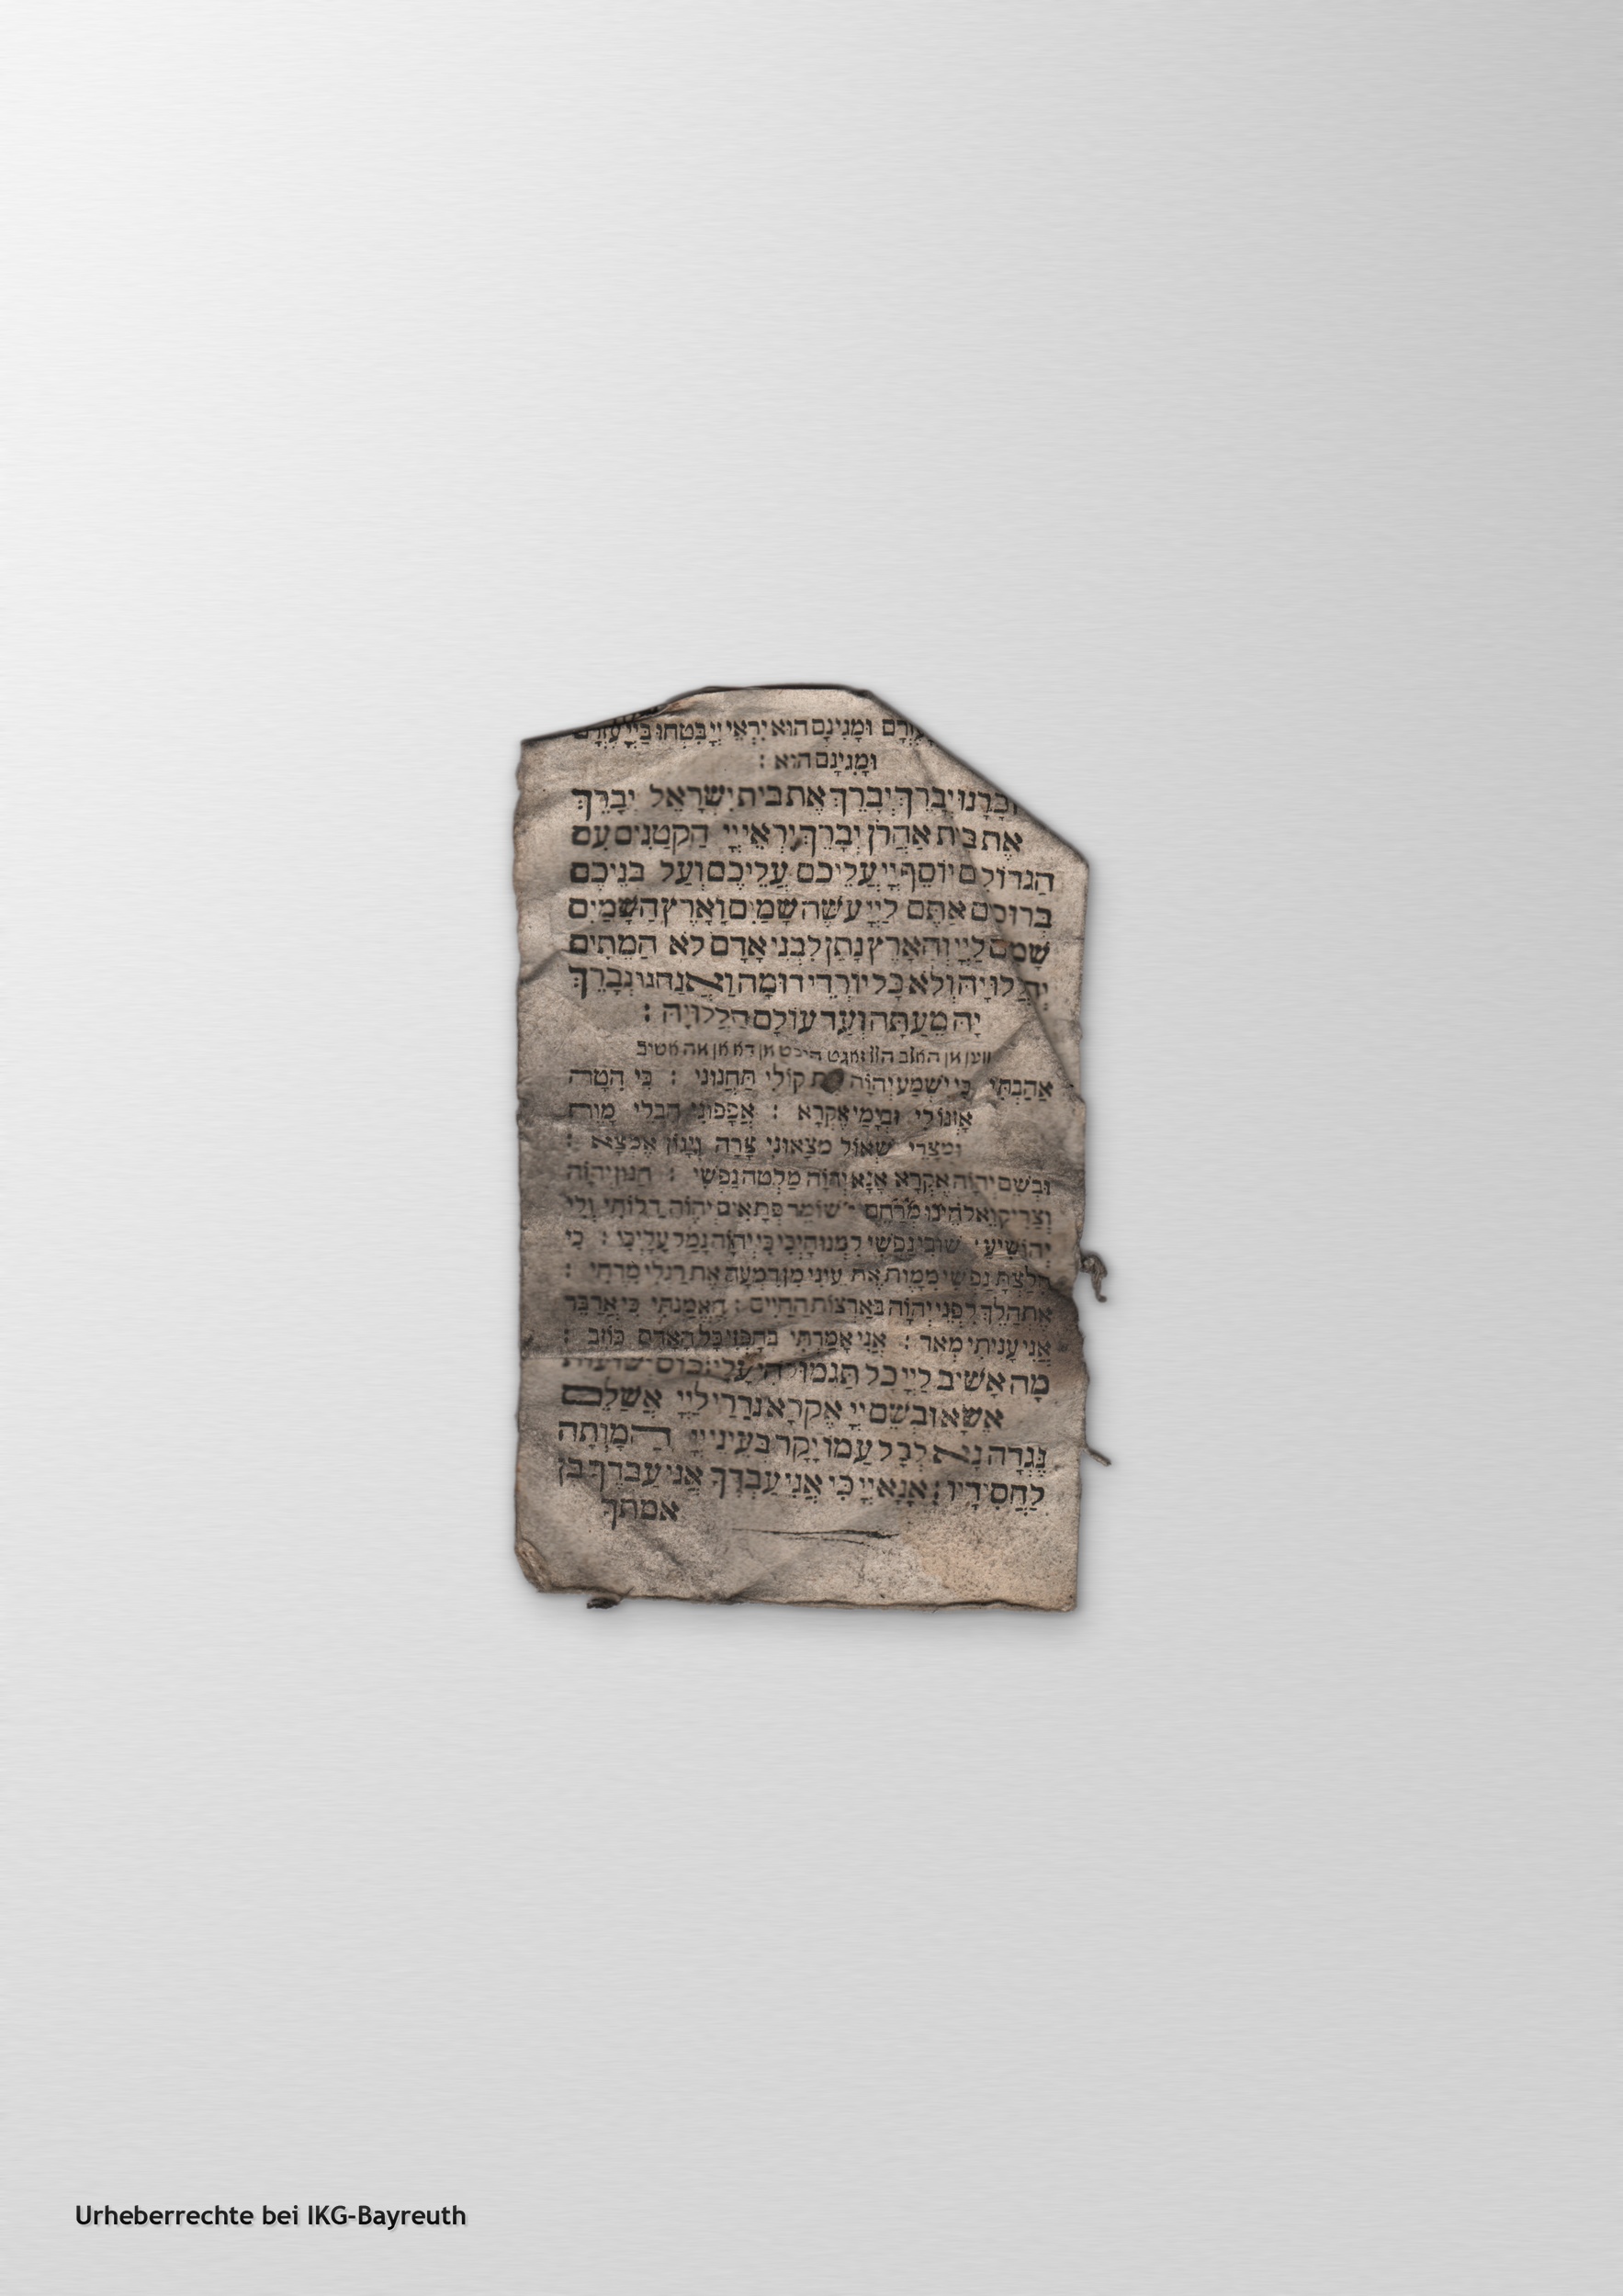 עֶזְרָם וּמָגִינָם הוּא יִרְאֵי יְיָ בִּטְחוּ בַּיְיָ עֶזְרָם
וּמָגִינָם הוּא :
זְכָרָנוּ יְבָרֵךְ יְבָרֵךְ אֶת בֵּית יִשְׂרָאֵל יְבָרֵךְ
אֶת בֵּית אַהֲרֹן יְבָרֵךְ יִרְאֵי יְיָ הַקְטַנִּים עִם
הַגְּדוֹלִם יוֹסֵף יְיָ עֲלֵיכֶם עֲלֵיכֶם וְעַל בְּנֵיכֶם
בְּרוּכִים אַתֶּם לַיְיָ עֹשֵׂה שָׁמַיִם וָאָרֶץ הַשָּׁמַיִם
שָׁמַם לַיְיָ וְהָאָרֶץ נָתַן לִבְנֵי אָדָם לֹא הַמֵּתִים
יְהַלְלוּ יָהּ וְלֹא כָּל יוֹרְדֵי דוּמָה וַאֲנַחְנוּ נְבָרֵךְ
יָהּ מֵעַתָּה וְעַד עוֹלָם הַלְלוּיָהּ :
אָהַבְתִּי כִּי יִשְׁמַע יְהוָֹה אֶת קוֹלִי תַּחֲנוּנָי : כִּי הִטָּה
אָזְנוֹ לִי וּבְיָמַי אֶקְרָא : אֲפָפוּנִי חֶבְלֵי מָוֶת
וּמְצָרֵי שְׁאוֹל מְצָאוּנִי צָרָה וְיָגוֹן אֶמְצָא :
וּבְשֵׁם יְהוָֹה אֶקְרָא אָנָּא יְהוָֹה מַלְּטָה נַפְשִׁי : חַנּוּן יְהוָֹה
וְצַדִּיק וֵאלֹהֵינוּ מְרַחֵם : שׁוֹמֵר פְּתָאִים יְהוָֹה דַּלּוֹתִי וְלִי
יְהוֹשִׁיעַ : שׁוּבִי נַפְשִׁי לִמְנוּחָיְכִי כִּי יְהוָֹה גָּמַל עָלָיְכִי : כִּי
חִלַּצְתָּ נַפְשִׁי מִמָּוֶת אֶת עֵינִי מִן דִּמְעָה אֶת רַגְלִי מִדֶּחִי :
אֶתְהַלֵּךְ לִפְנֵי יְהוָֹה בְּאַרְצוֹת הַחַיִּים : הֶאֱמַנְתִּי כִּי אֲדַבֵּר
אֲנִי עָנִיתִי מְאֹד : אֲנִי אָמַרְתִּי בְחָפְזִי כָּל הָאָדָם כּוֹזֵב :
מָה אָשִׁיב לַיְיָ כָּל תַּגְמוּלוֹהִי עָלָי כּוֹס יְשׁוּעוֹת
אֶשָּׂא וּבְשֵׁם יְיָ אֶקְרָא נְדָרַי לַיְיָ אֲשַׁלֵּם
נֶגְדָה נָּא לְכָל עַמּוֹ יָקָר בְּעֵינֵי יְיָ הַמָּוְתָה
לַחֲסִידָיו : אָנָּא יְיָ כִּי אֲנִי עַבְדֶּךָ אֲנִי עַבְדְּךָ בֶּן
אמתך
Urheberrechte bei IKG-Bayreuth